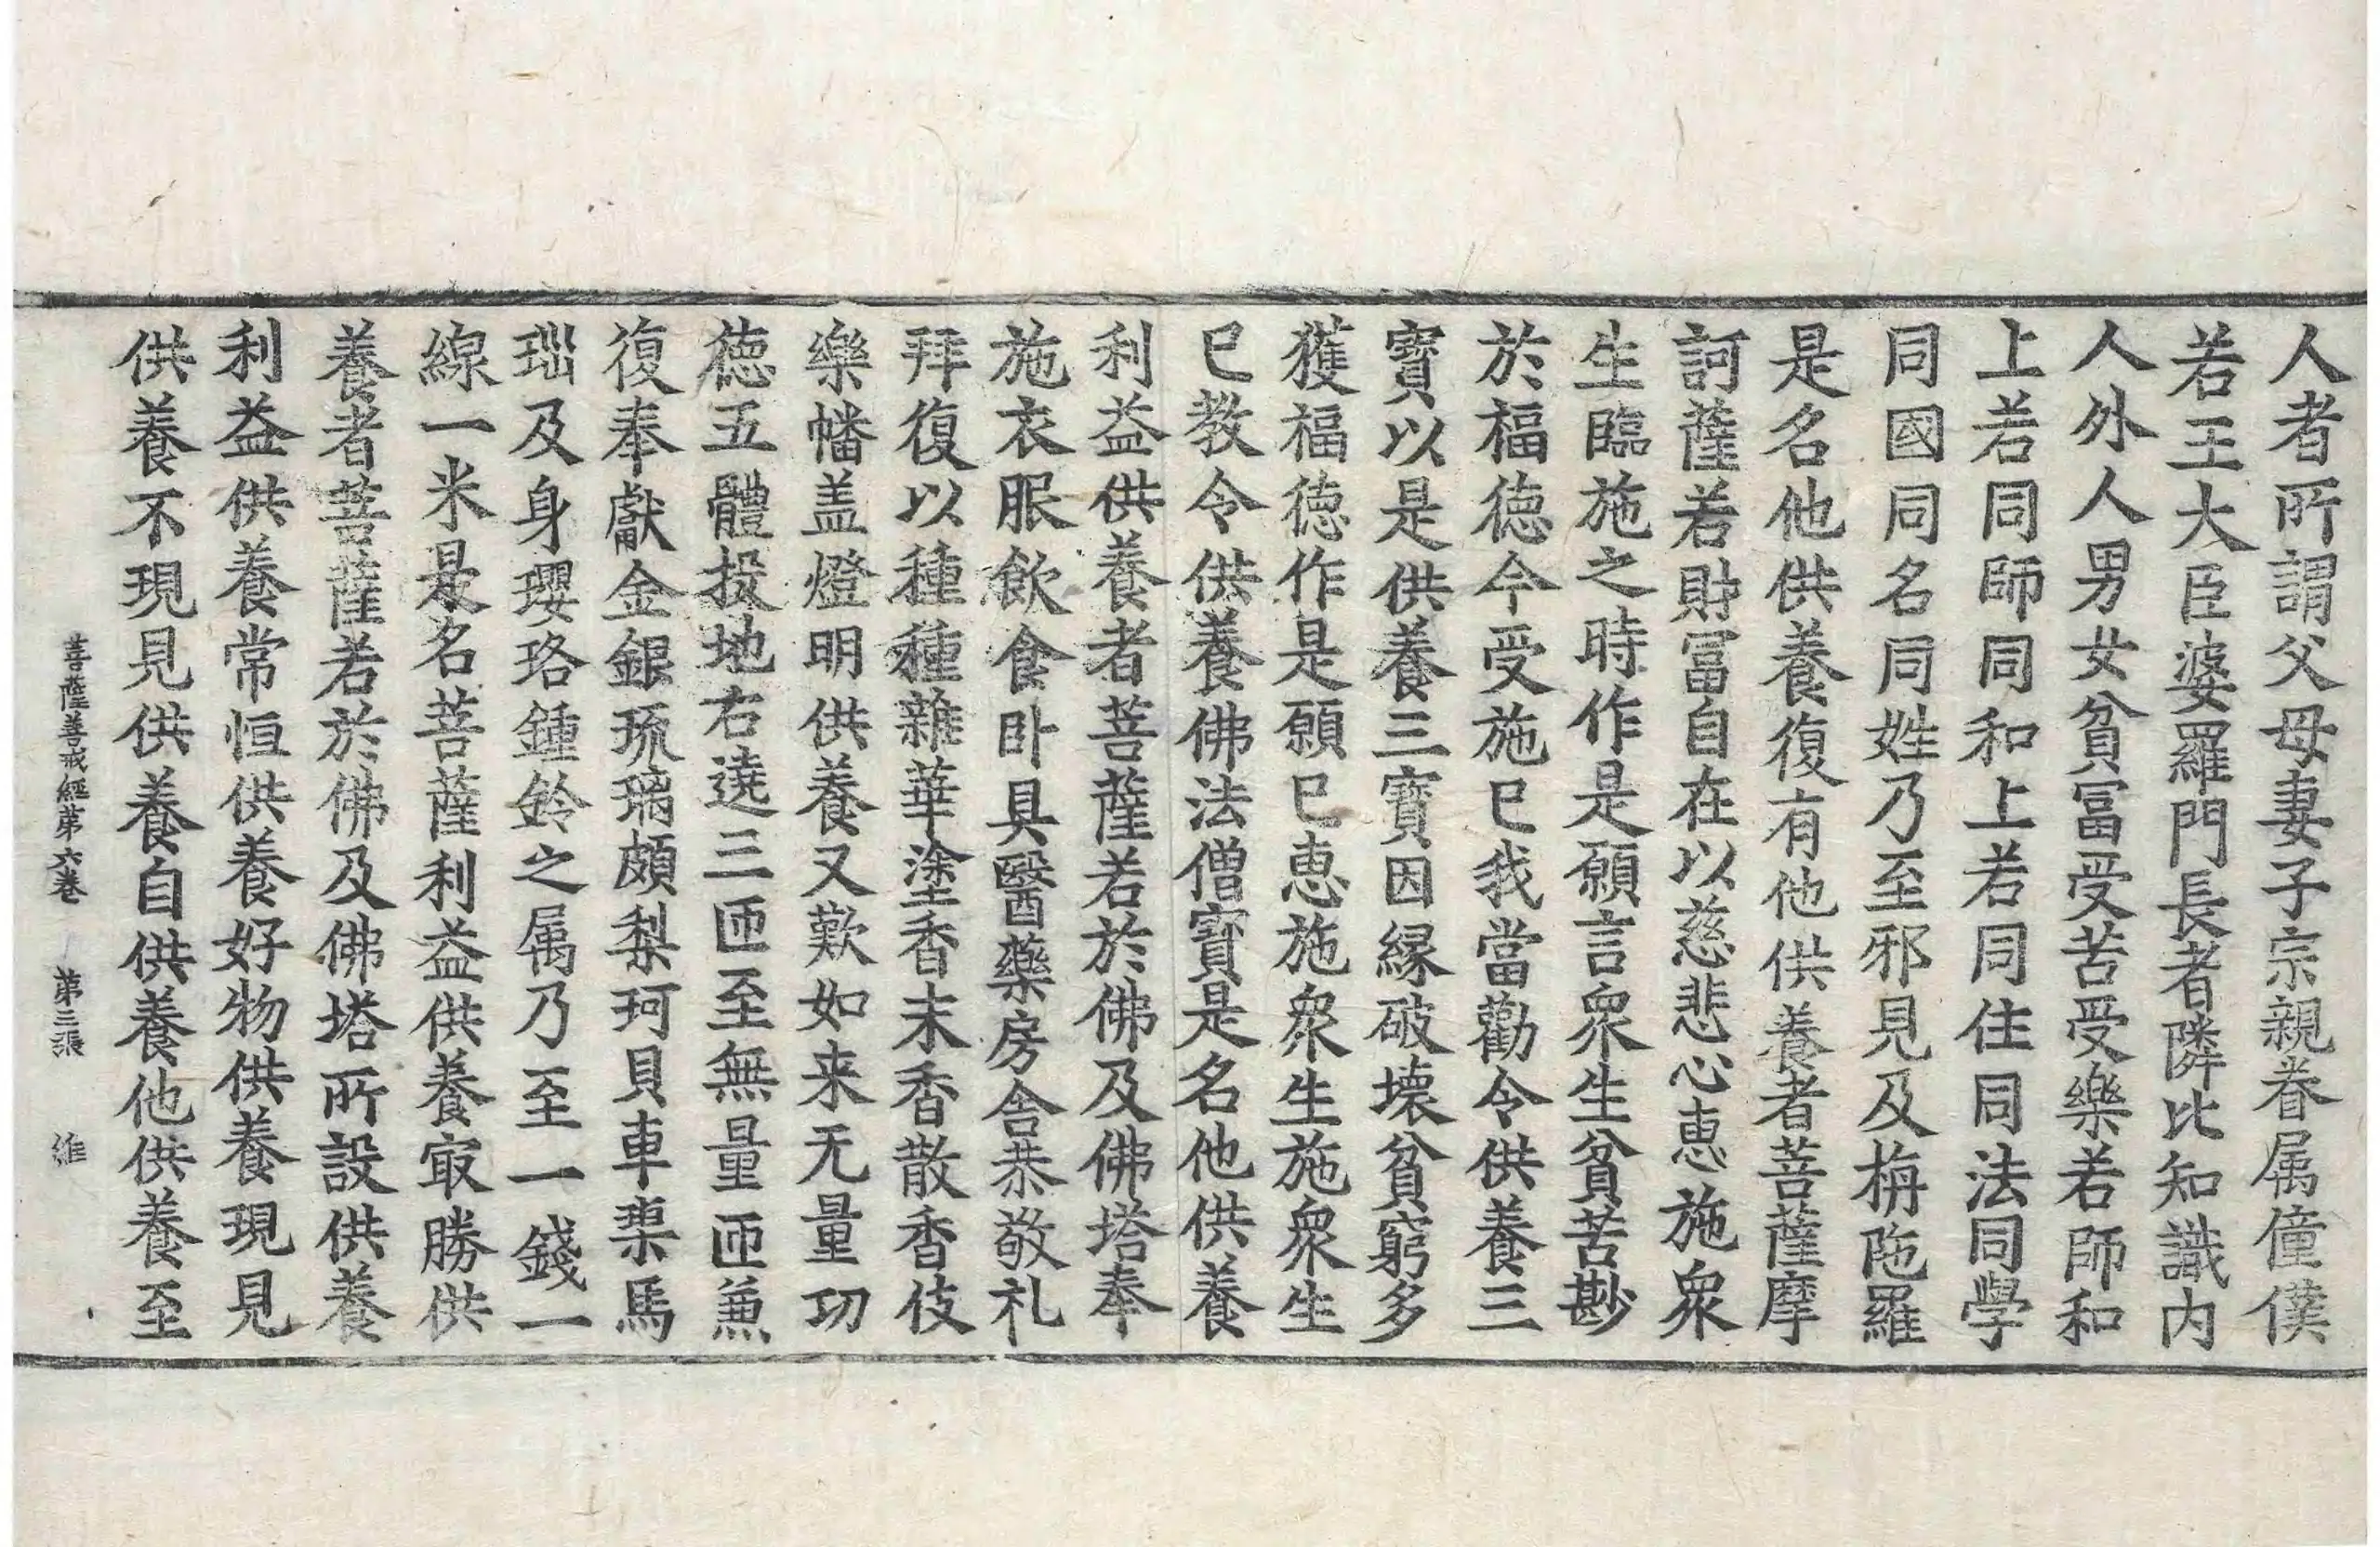 人者所謂父母妻子宗親眷属僮僕
若王大臣婆羅門長者隣比知識内
人外人男女貧富受苦受樂若師和
上若同師同和上若同住同法同學
同國同名同姓乃至邪見及栴陁羅
是名他供養復有他供養者菩薩摩
訶薩若財冨自在以慈悲心恵施衆
生臨施之時作是願言衆生貧苦尠
於福徳今受施已我當勸令供養三
寳以是供養三寳因縁破壊貧窮多
獲福徳作是願已恵施衆生施衆生
已教令供養佛法僧寳是名他供養
利益供養者菩薩若於佛及佛塔奉
施衣服飲食卧具醫藥房舎恭敬礼
拜復以種種雜華塗香末香散香伎
樂幡盖燈明供養又歎如来无量功
徳五體投地右遶三匝至無量匝兼
復奉獻金銀琉璃頗梨珂貝車璖馬
瑙及身瓔珞鍾鈴之属乃至一錢一
線一米是名菩薩利益供養㝡勝供
養者菩薩若於佛及佛塔所設供養
利益供養常恒供養好物供養現見
供養不現見供養自供養他供養至
菩薩善戒經第六巻 第三張 維